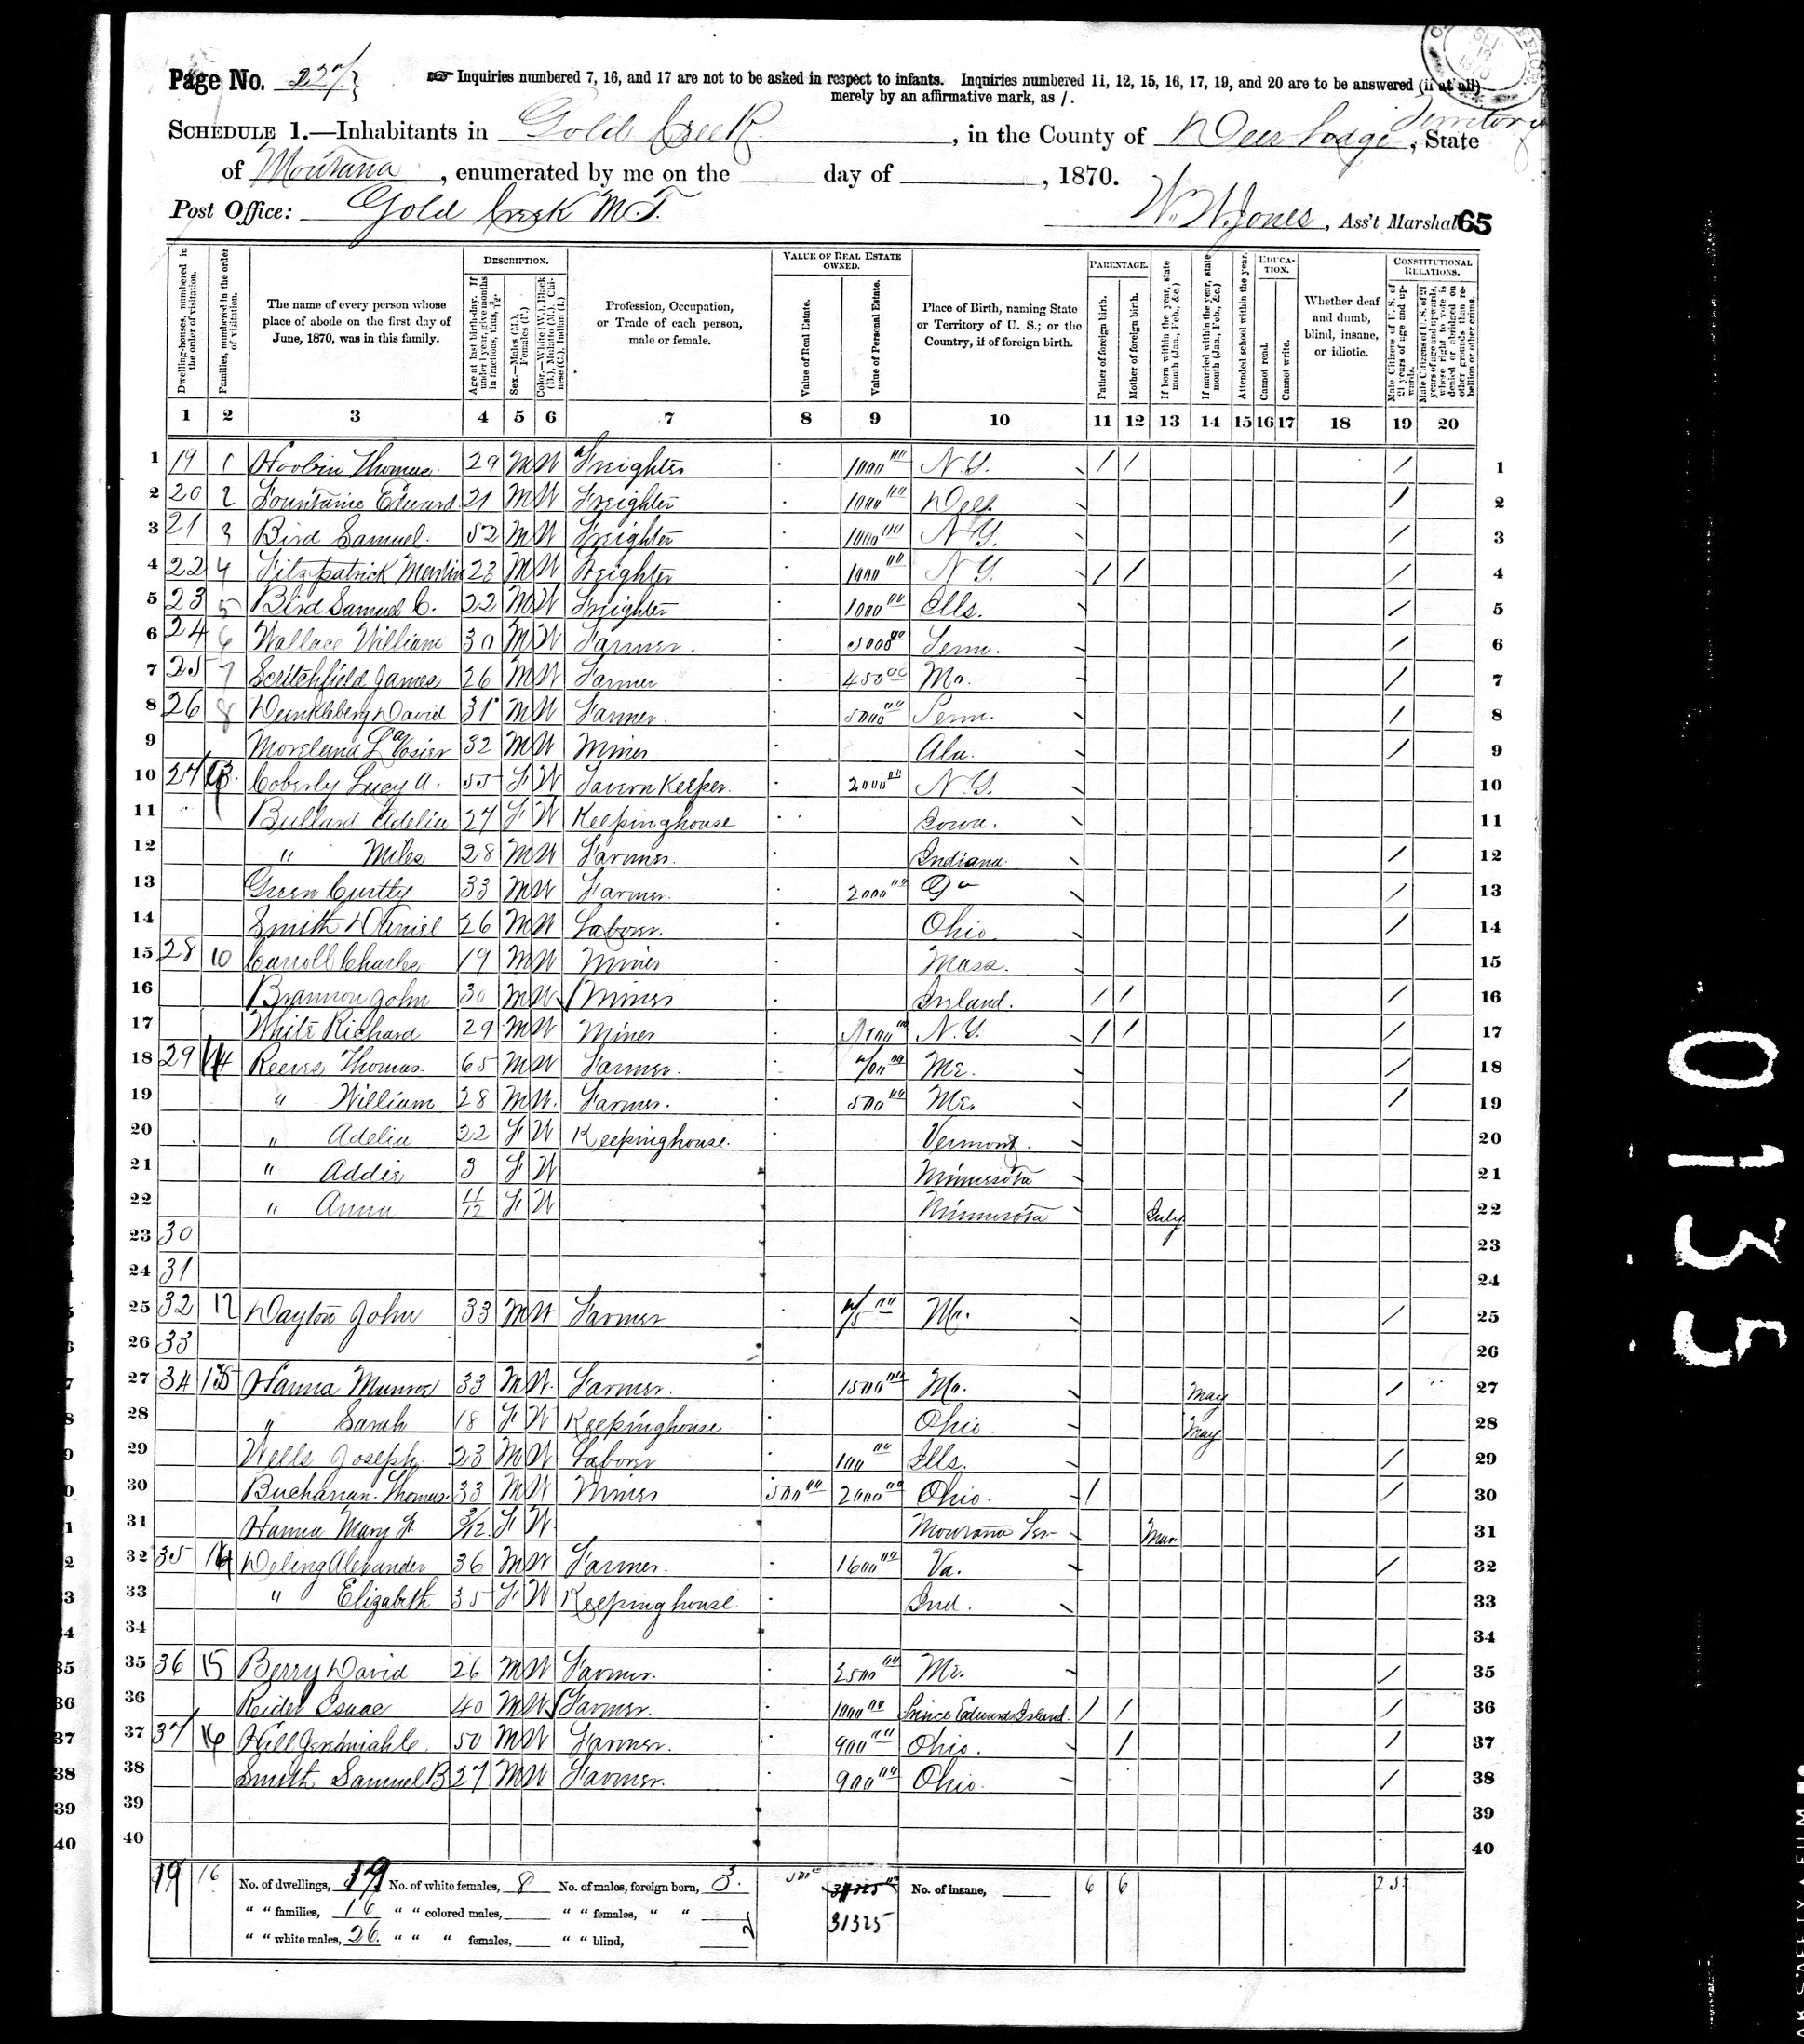 Page No. 227
Inquiries numbered 7, 16, and 17 are not to be asked in respect to infants. Inquiries numbered 11, 12, 15, 16, 17, 19, and 20 are to be answered (if at all)
merely by an affirmative mark, as /.
SCHEDULE 1.—Inhabitants in Gold Creek, in the County of Deer Lodge, State Territory
of Montana, enumerated by me on the ____ day of ____, 1870.
Post Office: Gold Creek M.T. W. W. Jones, Ass't Marshal 65
Dwelling-houses, numbered in the order of visitation.
Families, numbered in the order of visitation.
The name of every person whose place of abode on the first day of June, 1870, was in this family.
DESCRIPTION.
Age at last birth-day. If under 1 year, give months in fractions, thus, 3/12.
Sex.—Males (M.), Females (F.)
Color.—White (W.), Black (B.), Mulatto (M.), Chinese (C.), Indian (I.)
Profession, Occupation, or Trade of each person, male or female.
VALUE OF REAL ESTATE OWNED.
Value of Real Estate.
Value of Personal Estate.
Place of Birth, naming State or Territory of U. S.; or the Country, if of foreign birth.
PARENTAGE.
Father of foreign birth.
Mother of foreign birth.
If born within the year, state month (Jan., Feb., &c.)
If married within the year, state month (Jan., Feb., &c.)
EDUCATION.
Attended school within the year.
Cannot read.
Cannot write.
Whether deaf and dumb, blind, insane, or idiotic.
CONSTITUTIONAL RELATIONS.
Male Citizens of U. S. of 21 years of age and upwards.
Male Citizens of U. S. of 21 years of age and upwards, whose right to vote is denied or abridged on other grounds than rebellion or other crime.
1 2 3 4 5 6 7 8 9 10 11 12 13 14 15 16 17 18 19 20
1 19 1 Thomas 29 M W Freighter 1000 N.Y. / / / 1
2 20 2 Fountaine Edward 21 M W Freighter 1000 / 2
3 21 3 Bird Samuel 52 M W Freighter 1000 N.Y. / 3
4 22 4 Fitzpatrick 23 M W Freighter 1000 N.Y. / / / 4
5 23 5 Bird Samuel C. 22 M W Freighter 1000 Ills. / 5
6 24 6 Wallace William 30 M W Farmer 5000 / 6
7 25 7 Scritchfield James 26 M W Farmer 450 Mo. / 7
8 26 8 Dunkleberg David 31 M W Farmer 5000 Penn. / 8
9 32 M W Miner Ala. / 9
10 27 Coberly Lucy A. 55 F W Tavern Keeper 2000 N.Y. 10
11 Bullard Adelia 27 F W Keepinghouse Iowa. 11
12 " Miles 28 M W Farmer Indiana / 12
13 Green 33 M W Farmer 2000 Ga / 13
14 Smith Daniel 26 M W Labour. Ohio. / 14
15 28 10 Carroll Charles 19 M W Miner Mass. 15
16 Brannon John 30 M W Miner Irland. / / / 16
17 White Richard 29 M W Miner N.Y. / / / 17
18 29 Reeves Thomas 65 M W Farmer Me. / 18
19 " William 28 M W Farmer 500 Me. / 19
20 " Adelia 22 F W Keepinghouse. Vermont. 20
21 " Addie 3 F W Minnesota 21
22 " Anna 11/12 F W Minnesota July 22
23 30 23
24 31 24
25 32 12 Dayton John 33 M W Farmer Mo. / 25
26 33 26
27 34 13 Hanna Munroe 33 M W Farmer 1500 Mo. May / 27
28 " Sarah 18 F W Keepinghouse Ohio May 28
29 Wells Joseph 23 M W Labour 100 Ills. / 29
30 Buchanan Thomas 33 M W Miner 500 2000 Ohio. / / 30
31 Hanna Mary F. 3/12 F W Montana Ter. Mar 31
32 35 14 Deling Alexander 36 M W Farmer 1600 Va. / 32
33 " Elizabeth 35 F W Keepinghouse Ind. 33
34 34
35 36 15 Berry David 26 M W Farmer 2500 Me. / 35
36 Reider Isaac 40 M W Farmer 1000 Prince Edwards Island. / / / 36
37 37 16 Hill Jeremiah C. 50 M W Farmer 900 Ohio. / / 37
38 Smith Samuel B 27 M W Farmer 900 Ohio. / 38
39 39
40 40
19 16 No. of dwellings, 19 No. of white females, 8 No. of males, foreign born, 3. 500 No. of insane, 6 6 25
" " families, 16 " " colored males, " " females, " " 31325
" " white males, 26. " " " females, " " blind,
0135